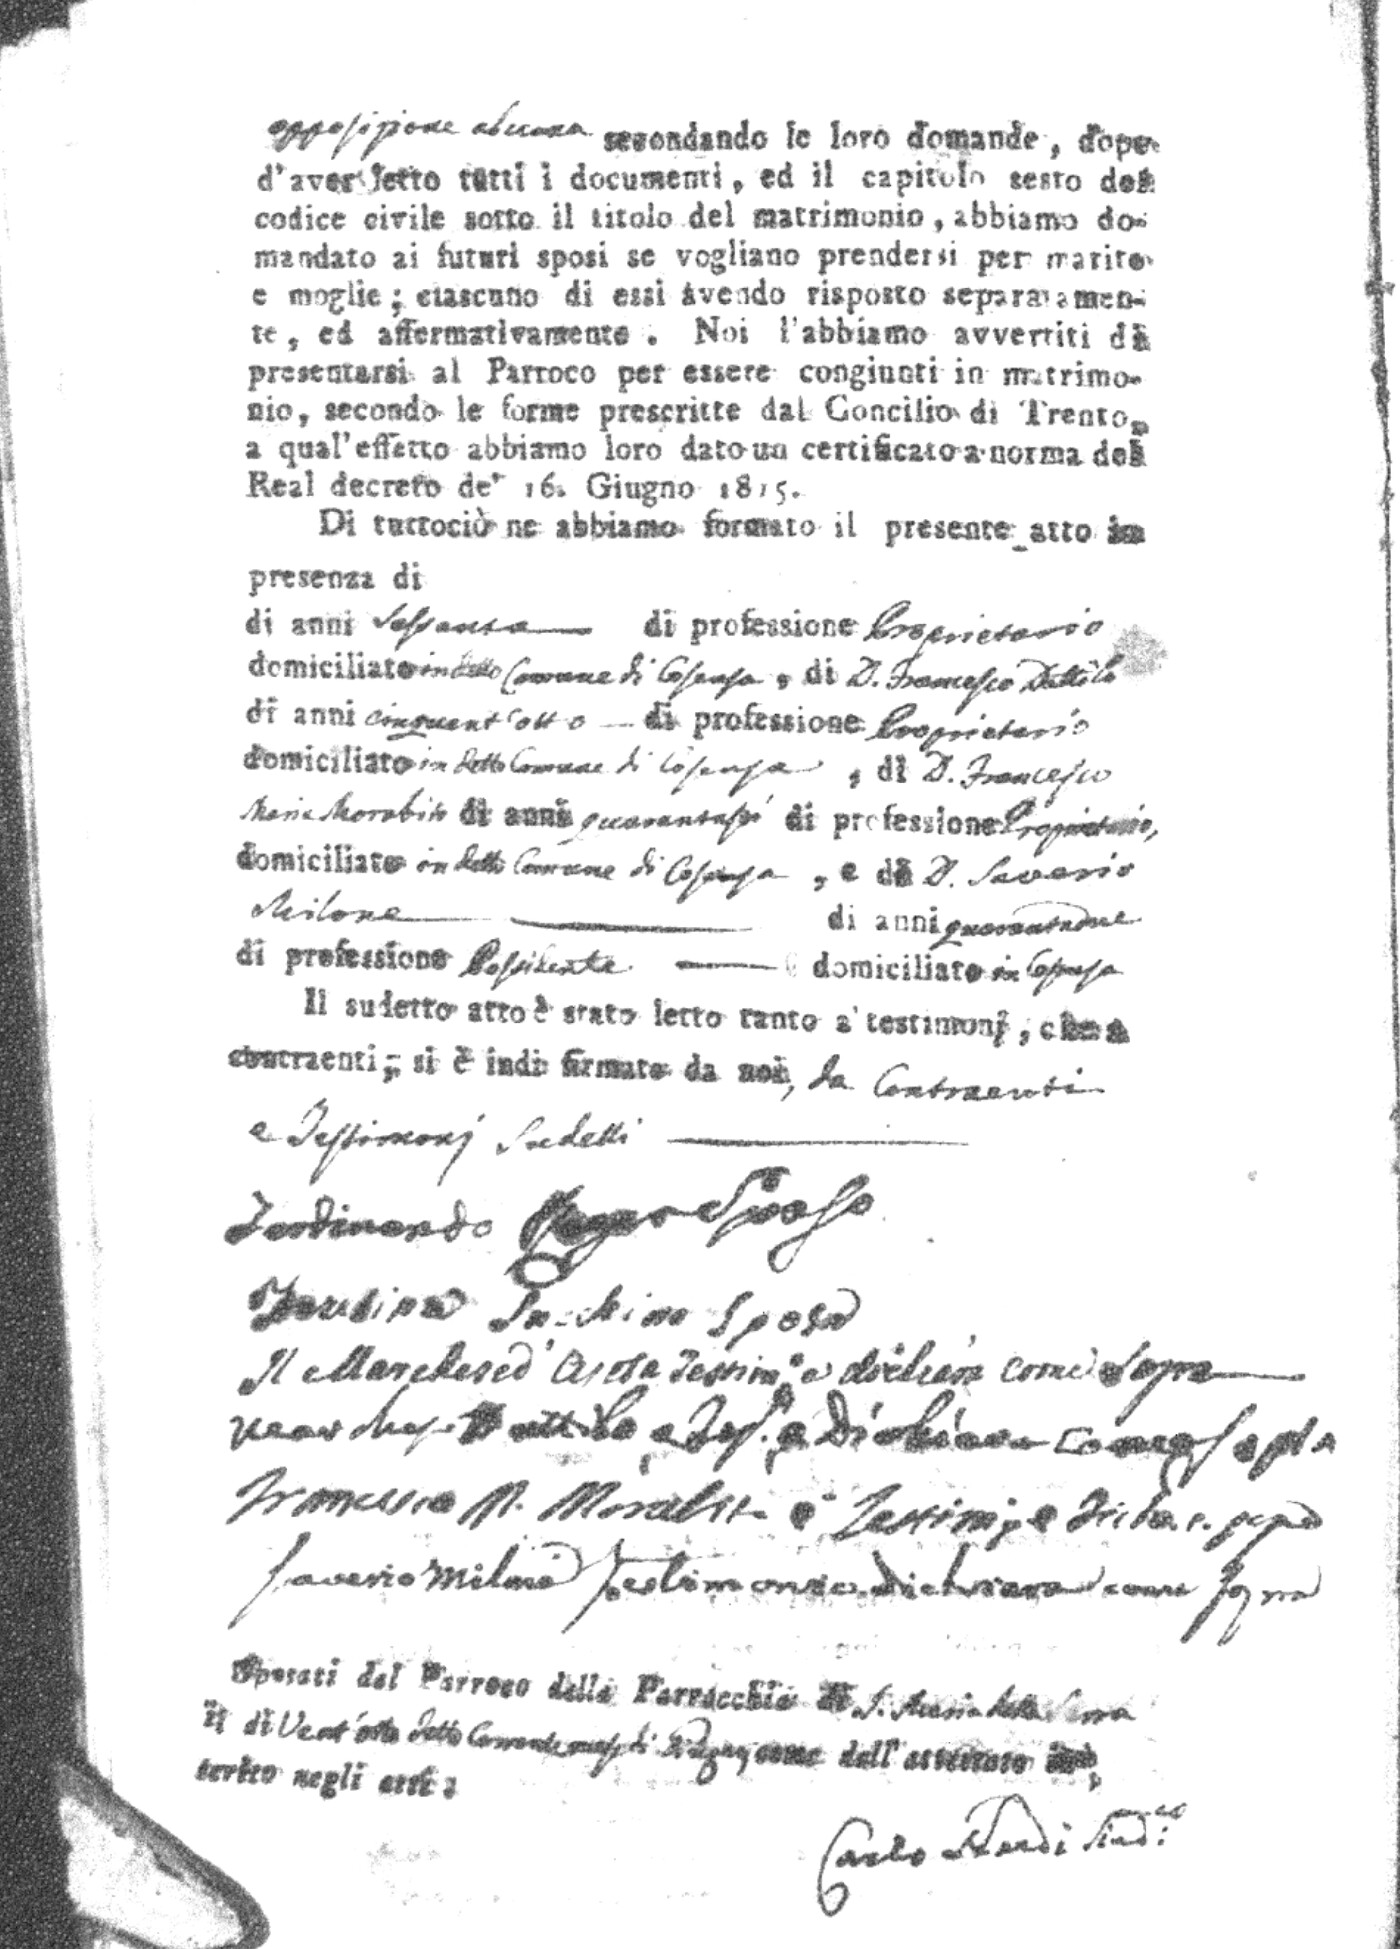 opposizione alcuna secondando le loro domande, dopo
d'aver letto tutti i documenti, ed il capitolo sesto del
codice civile sotto il titolo del matrimonio, abbiamo do-
mandato ai futuri sposi se vogliano prendersi per marito
e moglie; ciascuno di essi avendo risposto separatamen-
te, ed affermativamente. Noi l'abbiamo avvertiti di
presentarsi al Parroco per essere congiunti in matrimo-
nio, secondo le forme prescritte dal Concilio di Trento,
a qual'effetto abbiamo loro dato un certificato a norma del
Real decreto de' 16. Giugno 1815.
Di tuttociò ne abbiamo formato il presente atto in
presenza di
di anni Sessanta di professione Proprietario
domiciliato in detto Comune di Cosenza, di D. Francesco Dattilo
di anni cinquant'otto di professione Proprietario
domiciliato in detto Comune di Cosenza, di D. Francesco
Maria Morabito di anni quarantasei di professione Proprietario,
domiciliato in detto Comune di Cosenza, e di D. Saverio
Milone di anni quarantanove
di professione Possidente domiciliato in Cosenza
Il sudetto atto è stato letto tanto a' testimonj, che a
contraenti; si è indi firmato da noi, da Contraenti
e Testimonj Sudetti
Ferdinando Sposo
Sposa
Il Marchese d' Testim.o dichiara come Sopra
Dattilo Tes. Dichiara come Sopra
Francesco M. Morabito Testim.
Saverio Milone Testimonio dichiara come sopra
Sposati dal Parroco della Parrocchia di S. Maria della
li di Vent'otto detto Corrente mese di come dall'attestato in-
serito negli atti.
Carlo Sind.co